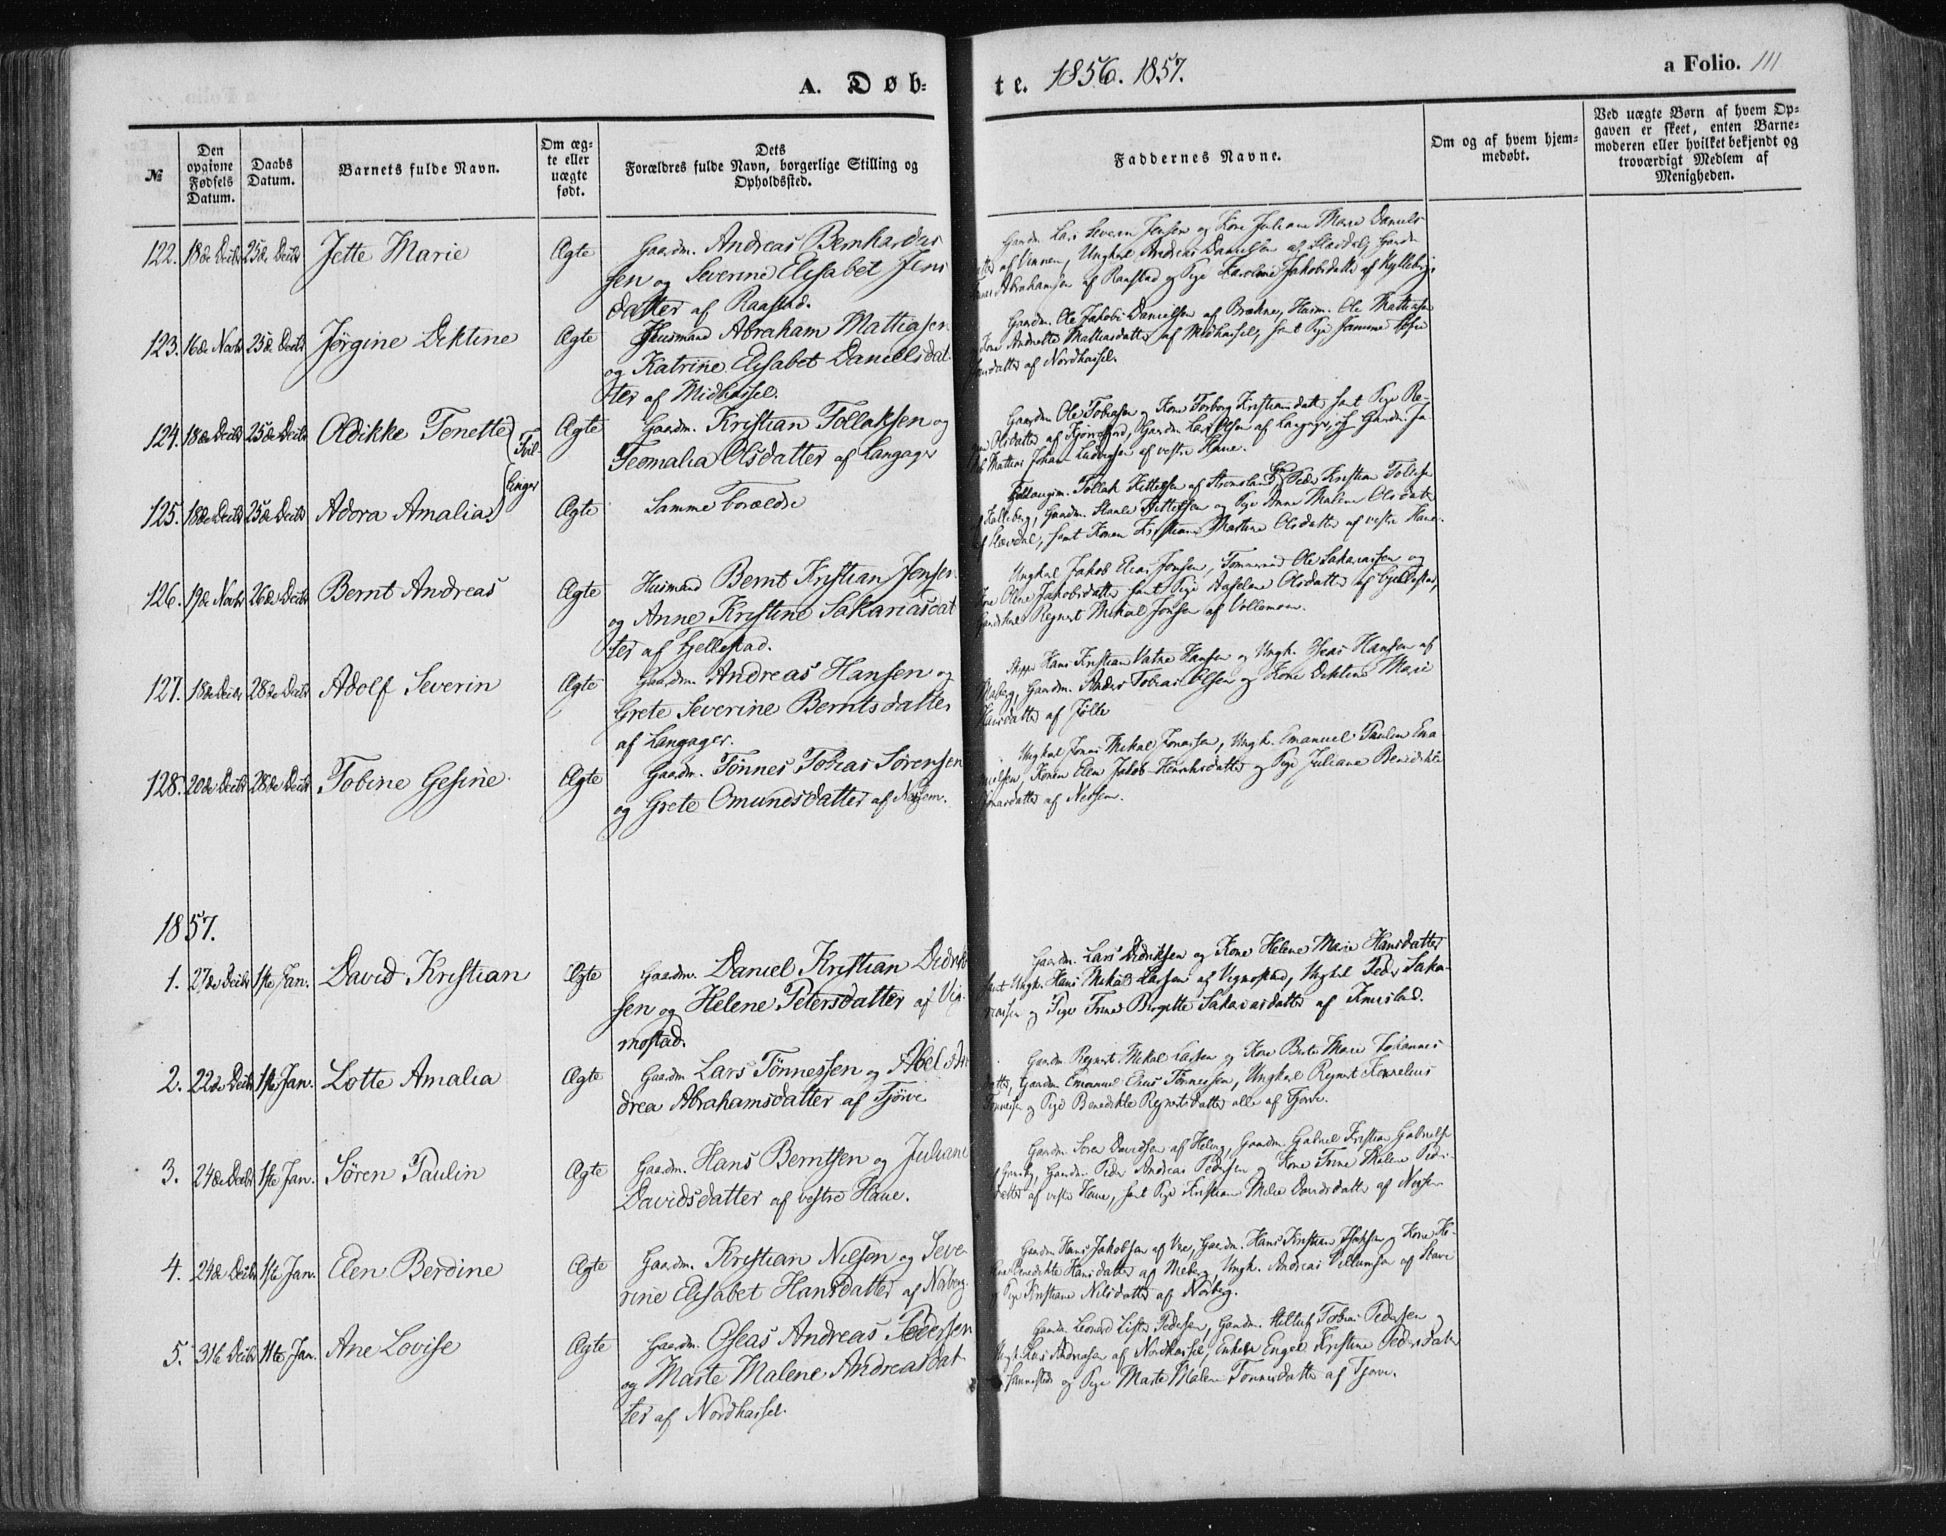 A. Døb-
te. 1856. 1857.
a Folio. 111
№
Den opgivne Fødsels Datum.
Daabs Datum.
Barnets fulde Navn.
Om ægte eller uægte født.
Dets Forældres fulde Navn, borgerlige Stilling og Opholdssted.
Faddernes Navne.
Om og af hvem hjemmedøbt.
Ved uægte Børn af hvem Opgaven er skeet, enten Barnemoderen eller hvilket bekjendt og troværdigt Medlem af Menigheden.
122. 18de Decbr 25de Decbr Jette Marie Ægte Gaardm. Andreas Bernhardus
sen og Severine Elisabet Jens
datter af Raastad.
Gaardm. Lars Severin Jensen og Kone Juliane Marie Daniels
af Vinnen, Ungkal Andreas Danielsen af Slevdal, Gaardm
Abrahamsen af Raastad og Pige Karoline Jakobsdatter af Kylleberg
123. 16de Novbr 25de Decbr Jørgine Dektine Ægte Husmand Abraham Mathiasen
og Katrine Elisabet Danielsdat
ter af Midhassel.
Gaardm. Ole Jakob Danielsen af Brekne, Husm. Ole Mathiasen
Kone Andrette Mathiasdatter af Midhassel, samt Pige
datter af Nordhassel.
124. 18de Decbr 25de Decbr Odikke Tonette Tvil- Ægte Gaardm. Kristian Tollaksen og
Teomalia Olsdatter af Langager
Gaardm Ole Tobiasen og Kone Torborg Kristiansdatter samt Pige Re-
Olsdatter af Lars Olsen af Langager, og Gaardm Ja-
Mattias Johan Ludvigsen af vestre Haue.
125. 18de Decbr 25de Decbr Adora Amalia linger Ægte Samme Forældre
Tollak Kittelsen af Peder Kristian
Gaardm. og Pige Anne Malene Olsdatter
af Slevdal, samt Konen Kristiane Martine Olsdatter af vestre Haue.
126. 19de Novbr 26de Decbr Bernt Andreas Ægte Husmand Bernt Kristian Jensen
og Anne Kristine Sakariasdat
ter af Fjellestad.
Ungkal Jakob Elias Jensen, Tømmermd Ole Sakariassen og
Kone Olene Jakobsdatter samt Pige Aaselene Olsdatter af Fjellestad,
Regnert Mikal Jonsen af Vollemoen.
127. 18de Decbr 28de Decbr Adolf Severin Ægte Gaardm. Andreas Hansen og
Grete Severine Berntsdatter
af Langager.
Hans Kristian Vatne Hansen og Ungk. Hansen af
Gaardm. Anders Tobias Olsen og Kone Dektine Marie
Hansdatter af Jølle
128. 20de Decbr 28de Decbr Tobine Gesine Ægte Gaardm. Tønnes Tobias Sørensen
og Grete Omundsdatter af Nesjem.
Ungkal Jonas Mikal Jonassen, Ungk. Emanuel Paulin Ema
nuelsen, Konen Elen Jakob Henriksdatter og Pige Juliane Benedikte
Jonasdatter af Nessem.
1857.
1. 27de Decbr 1ste Jan. David Kristian Ægte Gaardm. Daniel Kristian Didrik
sen og Helene Petersdatter af Vig
mostad.
Gaardm. Lars Didriksen og Kone Helene Marie Hansdatter
samt Ungk. Hans Mikal Larsen af Vigmostad, Ungkal Peder Saka-
riassen og Pige Trine Birgitte Sakariasdatter af Knivstad.
2. 22de Decbr 1ste Jan. Lotte Amalia Ægte Gaardm Lars Tønnessen og Abel An
drea Abrahamsdatter af Tjørve
Gaardm Regnert Mikal Larsen og Kone Berte Marie Johannes
datter, Gaardm Emanuel Elias Tønnessen, Ungkal Regnert Kornelius
Tønnessen og Pige Benedikte Regnertsdatter alle af Tjørve.
3. 24de Decbr 1ste Jan. Sören Paulin Ægte Gaardm. Hans Berntsen og Juliane
Davidsdatter af vestre Haue.
Gaardm Søren Davidsen af Gaardm Gabriel Kristian Gabrielse
Gaardm. Peder Andreas Pedersen og Kone Trine Malene Peders-
datter af vestre Haue, samt Pige Kristiane Davidsdatter af Nessem
4. 24de Decbr 1ste Jan. Elen Berdine Ægte Gaardm. Kristian Nilsen og Seve
rine Elisabet Hansdatter af Norberg
Gaardm Hans Jakobsen af Vere, Gaardm. Hans Kristian og Kone He-
Benedikte Hansdatter af Ungk. Andreas Villumsen af Stave
og Pige Kristiane Nilsdatter af Norberg.
5. 31te Decbr 11te Jan. Ane Lovise Ægte Gaardm. Oseas Andreas Pedersen
og Marte Malene Andreasdat
ter af Nordhassel.
Gaardm Leonard Lister Pedersen, Gaardm. Tobias Pedersen
Ungk. Lars Andreasen af Nordhassel, Enken Engel Kristine Pedersdatter
og Pige Marte Malene Tønnesdatter af Tjørve.